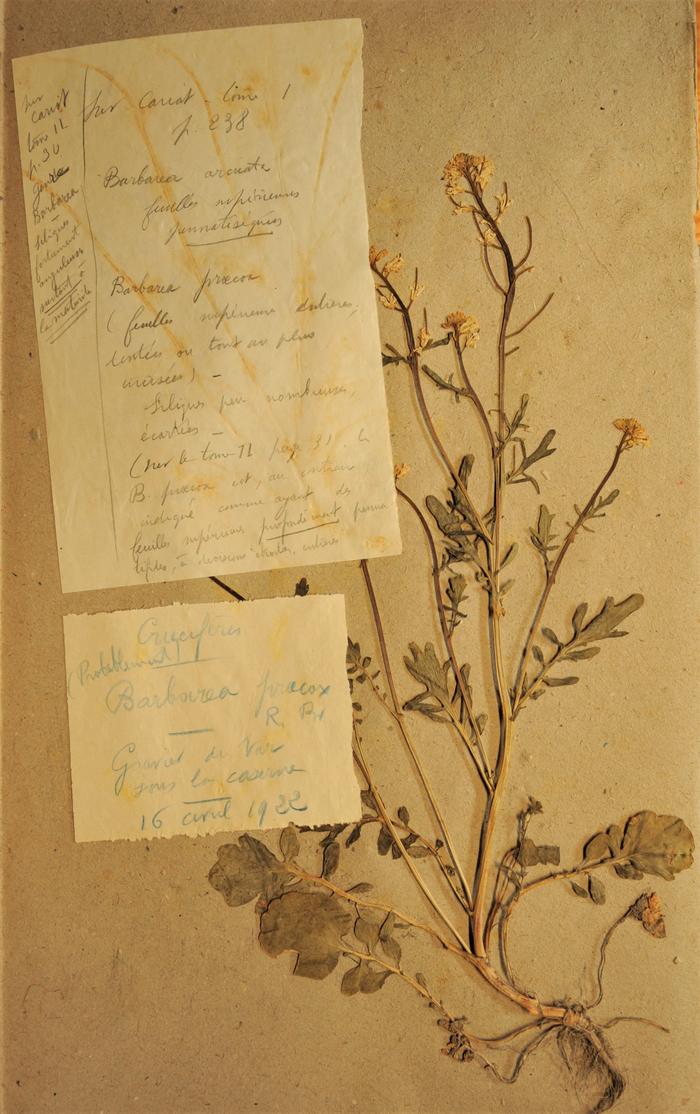 sur
Cariot
tom II
p. 30
genre
Barbarea
—
siliques
fortement
anguleuses
surtout à
la maturité
sur Cariot - tome 1
p. 238
Barbarea arcuata
feuilles supérieures
pennatiséquées
Barbarea præcox
(feuilles supérieures entières,
dentées ou tout au plus
incisées) —
Siliques peu nombreuses,
écartées —
(sur le tom II page 31. le
B. præcox est, au contraire
indiqué comme ayant des
feuilles supérieures profondément penna
tifides, à divisions étroites, entières
Crucifères
(Probablement)
Barbarea præcox
R. Br
—
Gravier du Var
sous la caserne
—
16 avril 1922